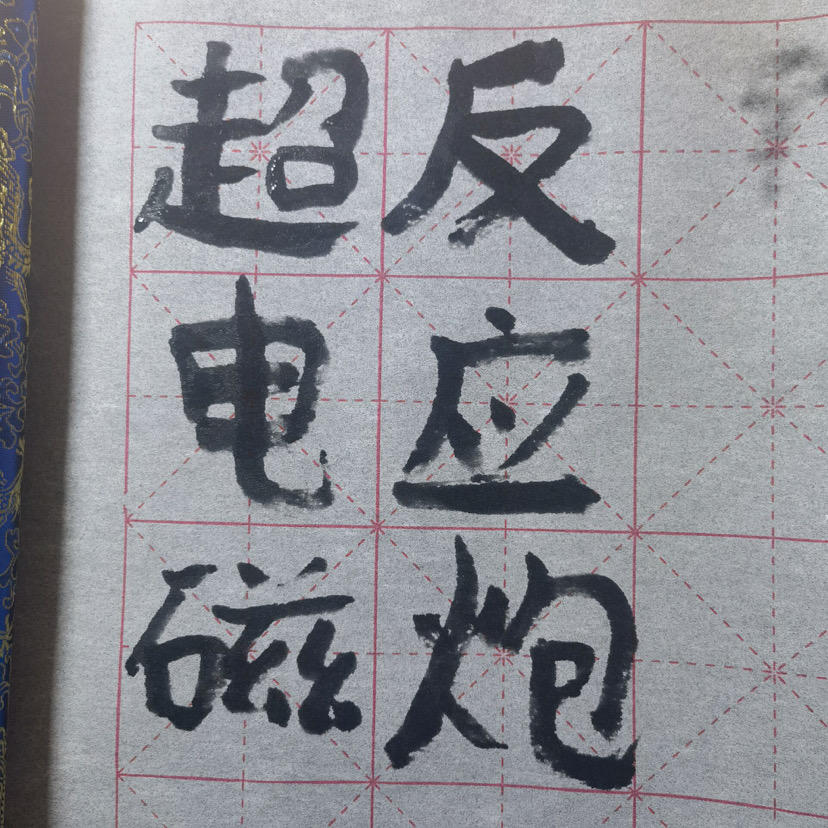 超电磁
反应炮